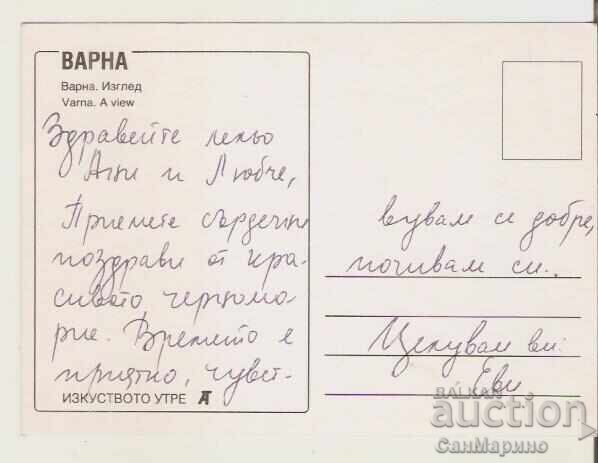 ВАРНА
Варна. Изглед
Varna. A view
Здравейте лельо
Ани и Любче,
Приемете сърдечни
поздрави от кра-
сивото черномо-
рие. Времето е
приятно, чувст-
ИЗКУСТВОТО УТРЕ
вувам се добре,
почивам си.
Целувам ви:
Еви
BALKAN
auction
СанМарино